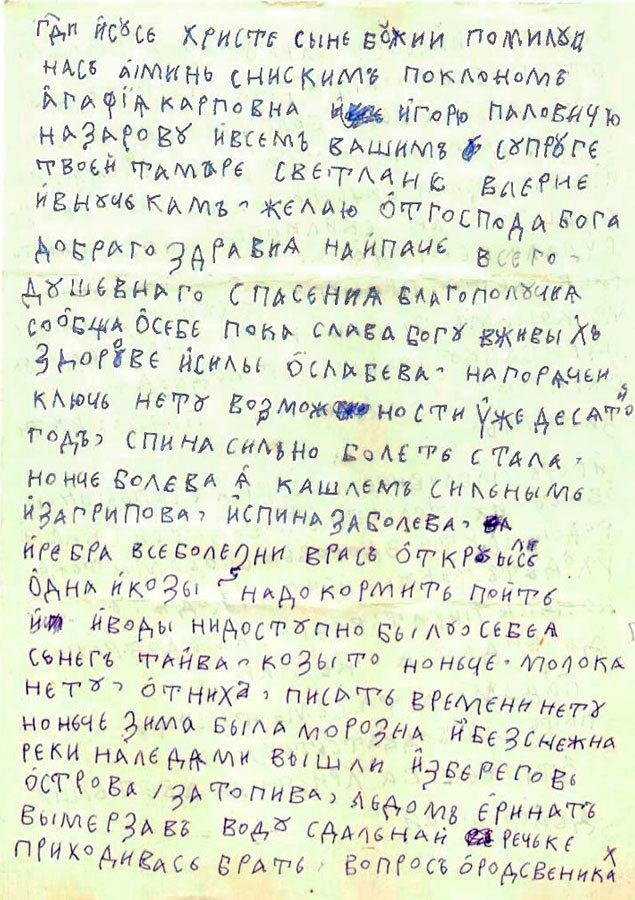 гд҃и йсусе христе сыне божии помилуи
насъ а́минь снискимъ поклономъ
а́гафіа карповна йгорю паловичю
назарову йвсемъ вашимъ супруге
твоей тамаре светлане влерие
йвнучекамъ, желаю о́тгоспода бога
добраго здравиа найпаче всего,
душевнаго спасениа благополучиа
сооб̾ща о́себе пока слава богу вживыхъ
здорове йсилы о́слабева, нагорачеи
ключь нету возможности у́же десатои
годъ, спина сильно болеть стала,
нонче болева а́ кашлемъ сильныме
йзагрипова, йспина заболева,
йребра всеболезни врасъ о́ткрылись
о́дна йкозы надокормить поить
йводы нидоступно былуосебеа
сьнегъ тайва, козы то ноньче, молока
нету, о́тниха, писать времени нету
ноньче зима была морозна йбезснежна
реки наледами вышли йзберегове
о́строва, затопива, льдомъ е́ринатъ
вымерзавъ воду сдальнаи речьке
приходивась брать, вопросъ о́родсвениках